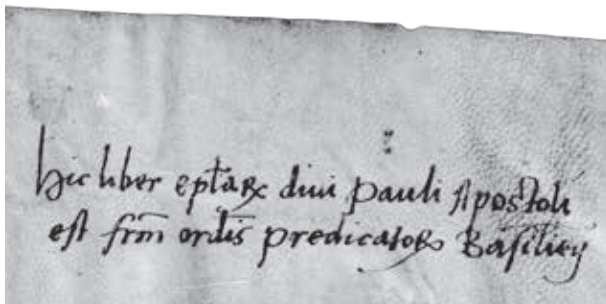 Hic liber ep̄tarꝝ diui pauli Apostoli
est fr̄m ordīs predicatorꝝ Basiliēn